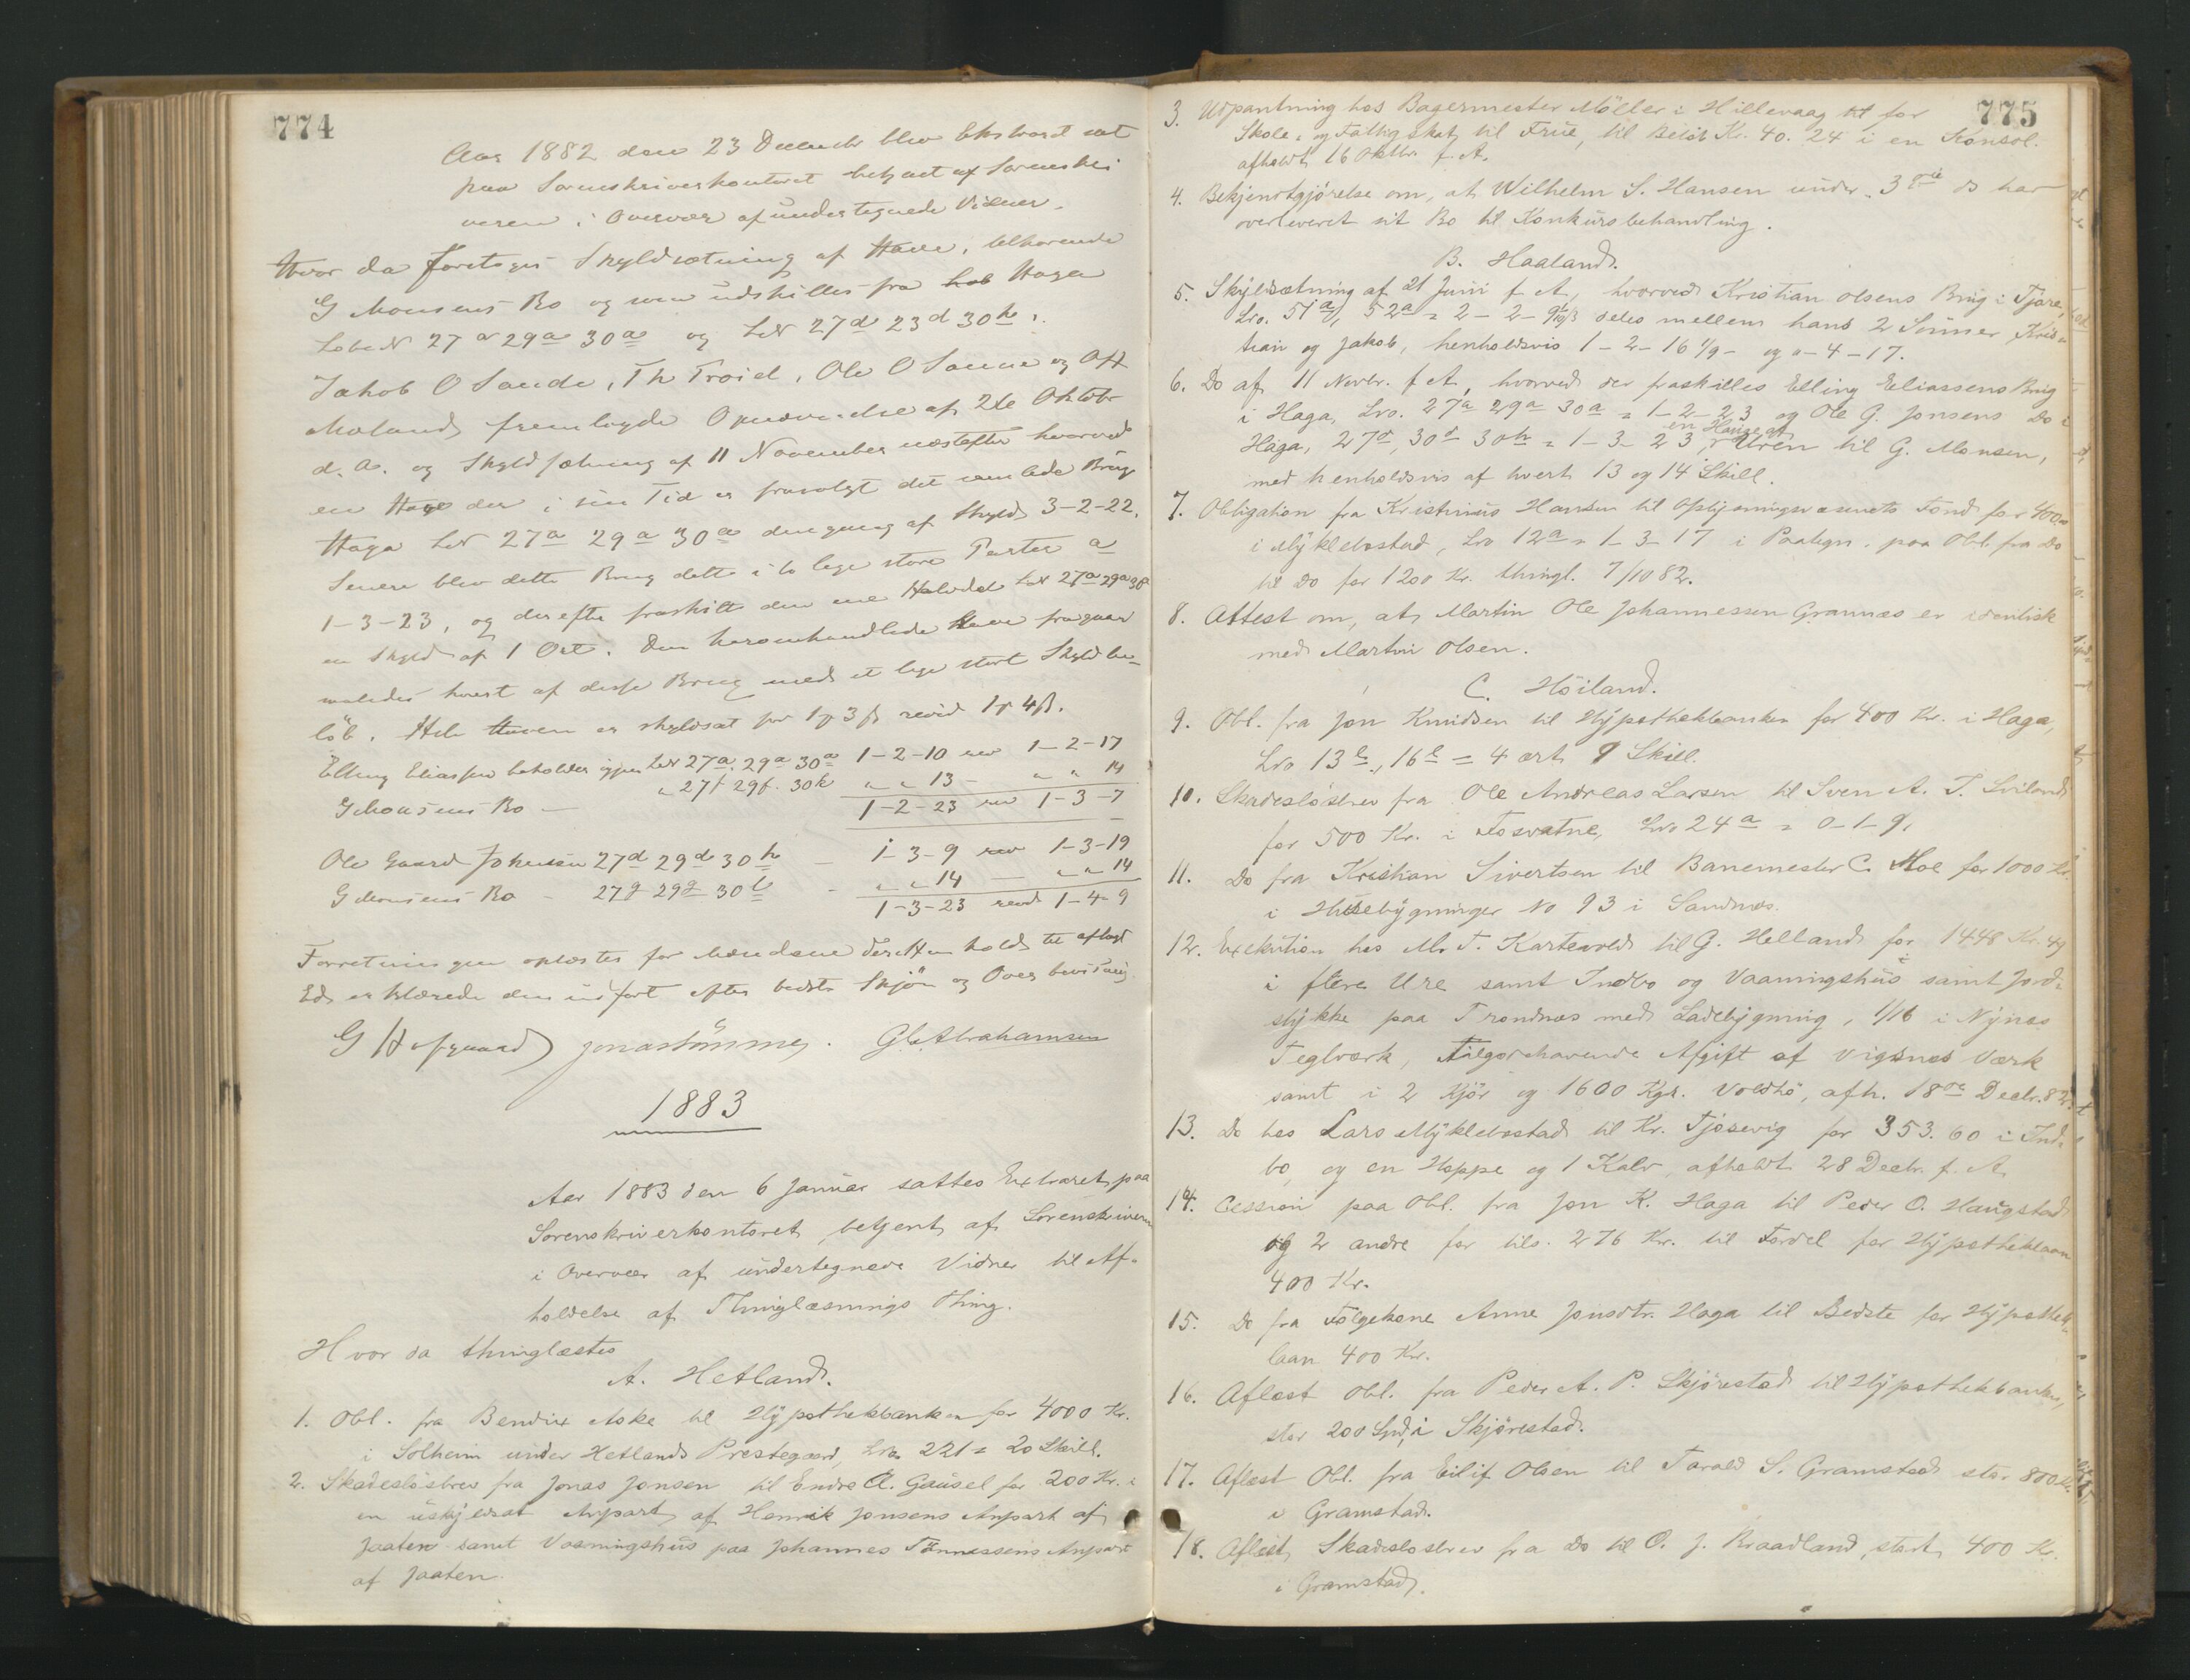 774
Aar 1882 den 23 December blev Ekstraret sat
paa Sorenskriverkontoret betjent af Sorenskri
veren i Overvær af undertegnede Vidner.
Hvor da foretoges Skyldsætning af Have, tilhørende
G Monsens Bo og som udskilles fra Haga
Lobe N 27 a 29a 30a og LN 27d 23d 30h.
Jakob O Sande, Th Troid, Ole O Sønne og
fremlagde Opnævnelse af 2de Oktobr
d. A. og Skyldsætning af 11 November næstefter hvorved
en Have der i sin Tid er frasolgt det samlede Brug
Haga LN 27a 29a 30a dengang af Skyld 3-2-22.
Senere blev dette Brug delt i to lige store Parter a
1-3-23, og derefter fraskilt den ene Halvdel LN 27a 29a 30a
en Skyld af 1 Ort. Den heromhandlede Have fragaar
saaledes hvert af disse Brug med et lige stort Skyldbe-
löb. Hele Haven er skyldsat for 1 3 ß revid 1 4 ß.
Elling Eliassen beholder igjen LN 27a. 29a 30a 1-2-10 rev 1-2-17
G Monsens Bo — " 27f 29f. 30k " " 13 — " " 14
1-2-23 rev 1-3-7
Ole Gaard Johnsen 27d 29d 30h — 1-3-9 rev 1-3-19
G Monsens Bo - 27g 29g 30l - " " 14 — " " 14
1-3-23 revd 1-4-9
Forretningen oplæstes for Mændene der i Henhold til aflagt
Ed erklærede den udført efter bedste Skjön og Overbevisning.
G Hofgaard Jonas G. Abrahamsen
1883
Aar 1883 den 6 Januar sattes Extraret paa
Sorenskriverkontoret, betjent af Sorenskriveren
i Overvær af undertegnede Vidner til Af-
holdelse af Thinglæsnings Thing.
Hvor da thinglæstes
A. Hetland.
1. Obl. fra Bendix Aske til Hypothekbanken for 4000 Kr.
i Solheim under Hetlands Prestegaard, Lno 221 = 20 Skill.
2. Skadesløsbrev fra Jonas Jonsen til Endre A. Gausel for 200 Kr. i
en uskyldsat Anpart af Henrik Jonsens Anpart af
Jaaten samt Vaaningshus paa Johannes Tönnessens Anpart
af Jaaten.
775
3. Udpantning hos Bagermester Möller i Hillevaag for
Skole- og Fattigskat til Frue, til Belöb Kr. 40. 24 i en Konsol.
afholdt 16 Oktbr. f. A.
4. Bekjendtgjörelse om, at Wilhelm S. Hansen under 3die ds har
overleveret sit Bo til Konkursbehandling.
B. Haaland.
5. Skyldsætning af 21 Juni f A, hvorved Kristian Olsens Brug i Tjöre,
Lno. 51a, 52a = 2-2-9 deles mellem hans 2 Sönner Kris-
tian og Jakob, henholdsvis 1-2-16 1/9 - og "-4-17.
6. Do af 11 Novbr. f A, hvorved der fraskilles Elling Eliassens Brug
i Haga, Lno. 27a 29a 30a = 1-2-23 og Ole G. Jonsens Do i
Haga, 27d, 30d 30h = 1-3-23, en Hauge til G. Monsen,
med henholdsvis af hvert 13 og 14 Skill.
7. Obligation fra Kristinius Hansen til Oplysningsvæsenets Fond for 400
i Myklebostad, Lno 12a = 1-3-17 i Paategn. paa Obl. fra Do
til Do for 1200 Kr. thingl. 7/10 82.
8. Attest om, at Martin Ole Johannessen Grannæs er identisk
med Martin Olsen.
C. Höiland.
9. Obl. fra Jon Knudsen til Hypothekbanken for 400 Kr. i Haga,
Lno 13b, 16b = 4 ort 9 Skill.
10. Skadeslösbrev fra Ole Andreas Larsen til Sven A. T. Sviland
for 500 Kr. i Fosvatne, Lno 24a = 0-1-9.
11. Do fra Kristian Sivertsen til Banemester C. Moe for 1000 Kr
i Husebygninger No 93 i Sandnæs.
12. Exekution hos M. T. Kartevold til G. Helland for 1448 Kr. 49
i flere Ure samt Indbo og Vaaningshus samt Jord-
stykke paa Trondnæs med Ladebygning, 1/16 i Nynæs
Teglværk, Tilgodehavende Afgift af Vigsnæs Værk
samt i 2 Kjör og 1600 Kgr. Voldhö, afh. 18de Decbr. 82.
13. Do hos Lars Myklebostad til Kr. Tjösevig for 353.60 i Ind-
bo, og en Hoppe og 1 Kalv, afholdt 28 Decbr. f. A
14. Cession paa Obl. fra Jon K. Haga til Peder O. Haugstad
og 2 andre for tils. 276 Kr. til Fordel for Hypotheklaan
400 Kr.
15. Do fra Fölgekone Anne Jonsdtr. Haga til Bedste for Hypothek-
laan 400 Kr.
16. Aflæst Obl. fra Peder A. P. Skjörestad til Hypothekbanken,
stor 200 Spd, i Skjörestad.
17. Aflæst Obl. fra Eilif Olsen til Tarald S. Gramstad stor 800 Kr.
i Gramstad.
18. Aflæst Skadeslösbrev fra Do til O. J. Braadland, stort 400 Kr.
i Gramstad.